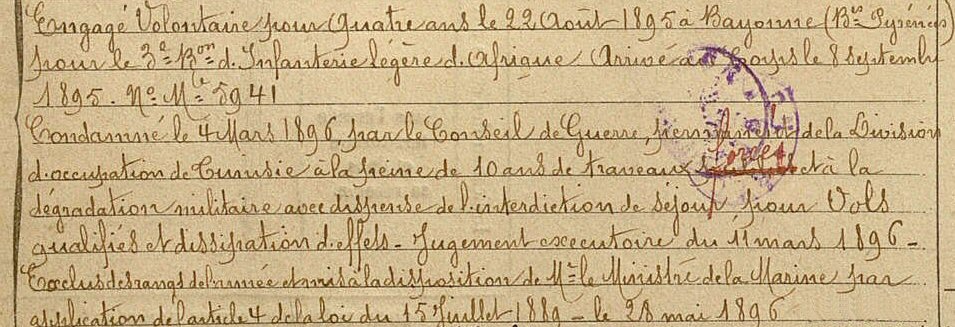 Engagé Volontaire pour Quatre ans le 22 Août 1895 à Bayonne (Bses Pyrénées)
pour le 3e Bon d'Infanterie légère d'Afrique. Arrivé au Corps le 8 septembre
1895. No Mle 5941
Condamné le 4 Mars 1896, par le Conseil de Guerre permanent de la Division
d'occupation de Tunisie à la peine de 10 ans de traveaux forcés et à la
dégradation militaire avec dispense de l'interdiction de séjour, pour Vols
qualifiés et dissipation d'effets - Jugement executoire du 11 mars 1896 -
Exclus des rangs de l'armée et mis à la disposition de Mr le Ministre de la Marine par
application de l'article 4 de la loi du 15 Juillet 1889 - le 28 mai 1896